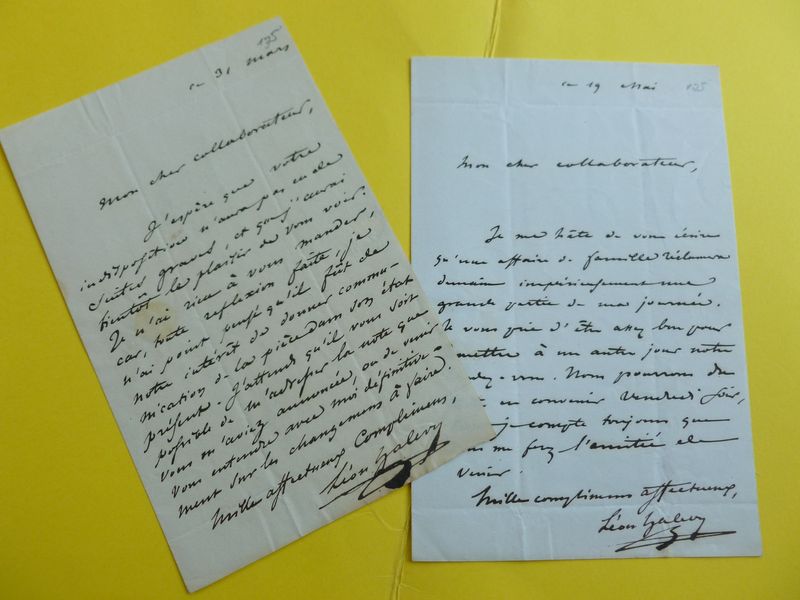 175
ce 31 mars
Mon cher collaborateur,
J'espère que votre
indisposition n'aura pas eu de
suites graves, et que j'aurai
bientôt le plaisir de vous voir.
Je n'ai rien à vous mander,
car, toute réflexion faite, je
n'ai point pensé qu'il fût de
notre intérêt de donner commu-
nication de la pièce dans son état
présent. J'attends qu'il vous soit
possible de m'adresser la note que
vous m'aviez annoncée, ou de venir
vous entendre avec moi définitive-
ment sur les changemens à faire.
Mille affectueux complimens,
Léon Halevy
ce 19 Mai 175
Mon cher collaborateur,
Je me hâte de vous écrire
qu'une affaire de famille réclamera
demain impérieusement une
grande partie de ma journée.
Je vous prie d'être assez bon pour
mettre à un autre jour notre
dez-vous. Nous pourrons
en convenir vendredi soir,
je compte toujours que
me ferez l'amitié de
venir.
Mille complimens affectueux,
Léon Halevy